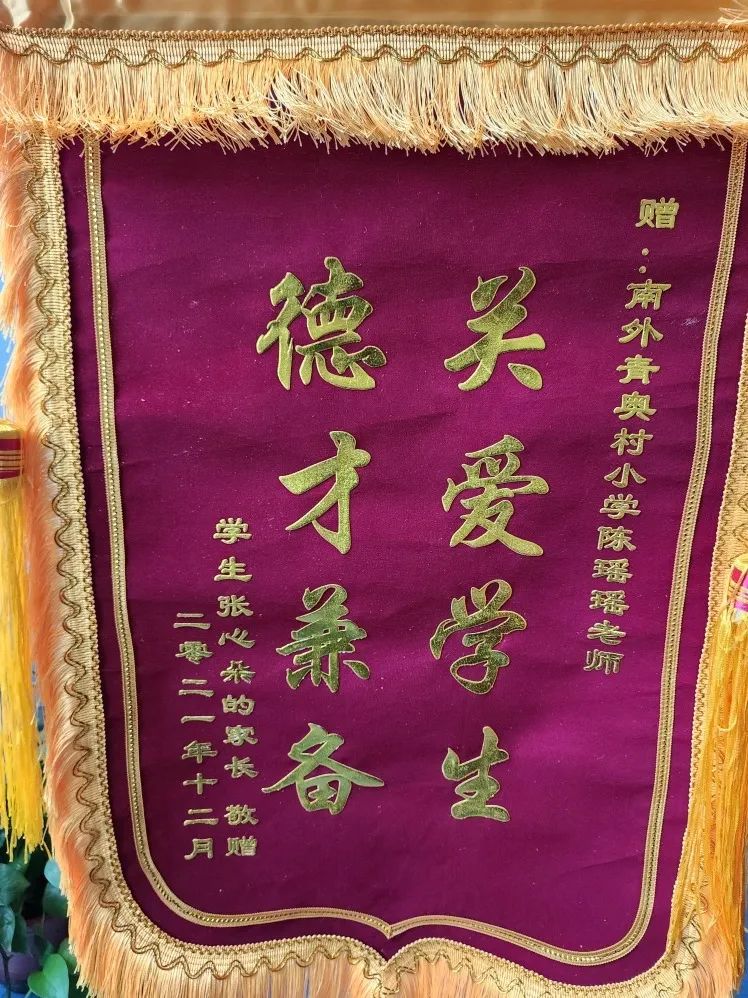 赠：南外青奥村小学陈瑶瑶老师
关爱学生
德才兼备
学生张心朵的家长 敬赠
二零二一年十二月